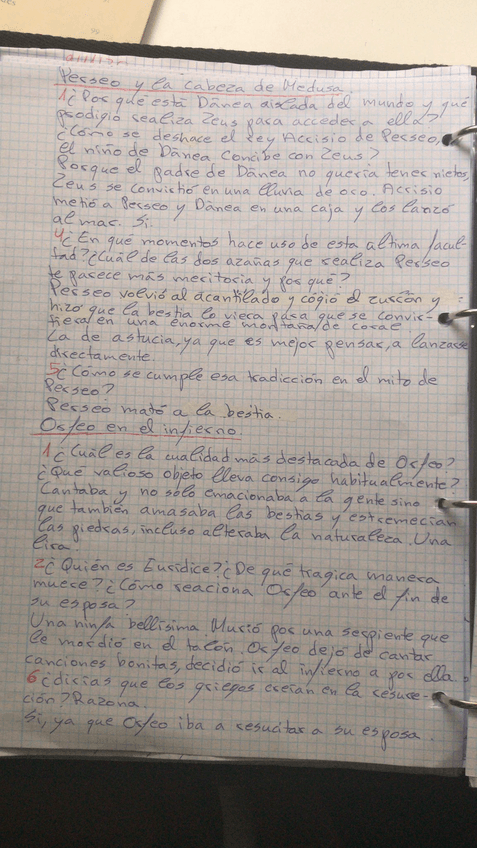 Perseo y la cabeza de Medusa.
1¿Por qué está Dánea aislada del mundo y qué
prodigio realiza Zeus para acceder a ella?
¿Cómo se deshace el rey Accisio de Perseo,
el niño de Dánea concibe con Zeus?
Porque el padre de Dánea no quería tener nietos,
Zeus se convirtió en una lluvia de oro. Accisio
metió a Perseo y Dánea en una caja y los lanzó
al mar. Si.
4¿En qué momentos hace uso de esta altima facul-
tad?¿Cuál de las dos azañas que realiza Perseo
te parece más meritoria y por qué?
Perseo volvió al acantilado y cogió el zurrón y
hizo que la bestia lo viera para que se convir-
tiera en una enorme montaña de corae
La de astucia, ya que es mejor pensar, a lanzarse
directamente.
5¿Cómo se cumple esa tradicción en el mito de
Perseo?
Perseo mató a la bestia.
Orfeo en el infierno.
1¿Cuál es la cualidad más destacada de Orfeo?
¿Qué valioso objeto lleva consigo habitualmente?
Cantaba y no sólo emacionaba a la gente sino
que también amasaba las bestias y estremecían
las piedras, incluso alteraba la naturaleza. Una
lira.
2¿Quién es Eurídice?¿De qué tragica manera
muere?¿Cómo reacciona Orfeo ante el fin de
su esposa?
Una ninfa bellísima. Murió por una serpiente que
le mordió en el talón. Orfeo dejó de cantar
canciones bonitas, decidió ir al infierno a por ella.
6¿dirías que los griegos creían en la resure-
ción? Razona.
Si, ya que Orfeo iba a resucitar a su esposa.